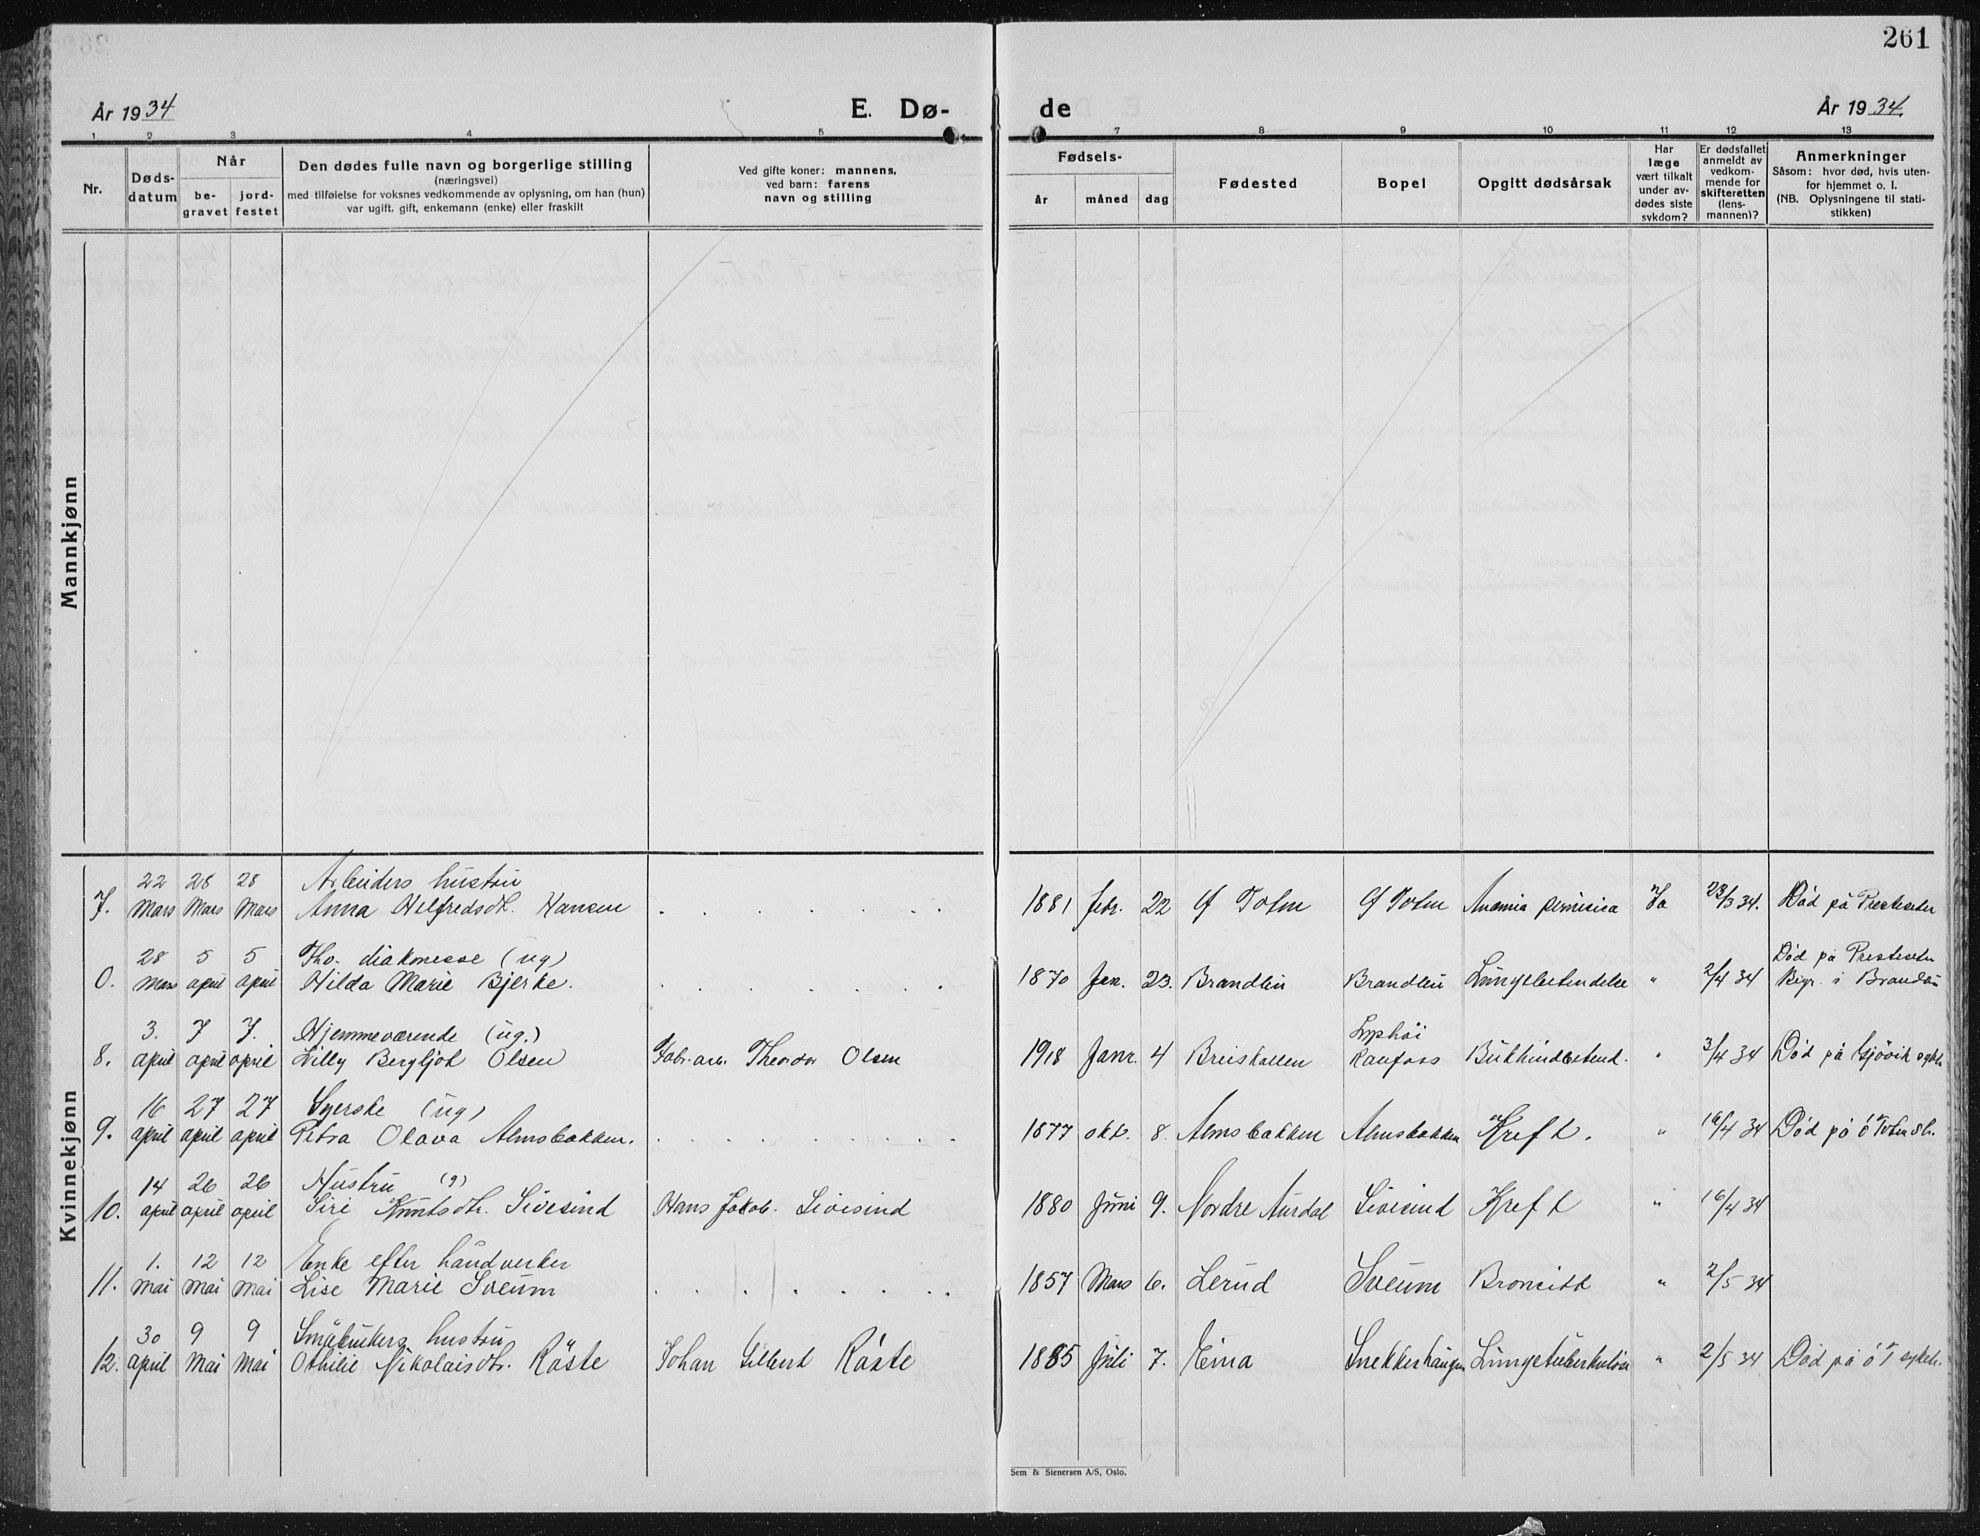 261
År 1934
E. Dø-
de
År 1934.
1 2 3 4 5 7 8 9 10 11 12 13
Nr.
Døds-
datum
Når
be-
gravet
jord-
festet
Den dødes fulle navn og borgerlige stilling
(næringsvei)
med tilføielse for voksnes vedkommende av oplysning, om han (hun)
var ugift, gift, enkemann (enke) eller fraskilt
Ved gifte koner: mannens,
ved barn: farens
navn og stilling
Fødsels-
år måned dag
Fødested
Bopel
Opgitt dødsårsak
Har
læge
vært tilkalt
under av-
dødes siste
sykdom?
Er dødsfallet
anmeldt av
vedkom-
mende for
skifteretten
(lens-
mannen)?
Anmerkninger
Såsom: hvor død, hvis uten-
for hjemmet o. l.
(NB. Oplysningene til stati-
stikken)
Mannkjønn
Kvinnekjønn
22 28 28 Arbeiders hustru
7. Mars Mars Mars Anna Helfredsdt. Hansen 1881 febr. 22 Ø Toten Ø Toten Anæmia Ja 23/3 34. Død på Presteseter
28 5 5 Fho. diakonesse (ug) Død på Presteseter
0. Mars april april Hilda Marie Bjerke. 1870 Jan. 23. Brandlien Brandlien Lungebetendelse " 2/4 34 Begr. i
3. 7 7. Hjemmeværende (ug.)
8. april april april Lilly Bergljot Olsen Fabr. arb. Theodor Olsen 1918 Janr. 4 Breiskallen Raufoss Bukhindebetend. " 3/4 34 Død på Gjøvik sykeh.
16 27 27 Syerske (ug)
9. april april april Petra Olava Almsbakken. 1877 okt. 8. Almsbakken Almsbakken Kreft. " 16/4 34 Død på Ø Toten sh.
14 26 26 Hustru (g)
10. april april april Siri Knutsdtr. Sivesind Hans Jakob Sivesind 1880 Juni 9. Nordre Aurdal Sivesind Kreft " 16/4 34
1. 12 12 Enke efter håndverker
11. mai mai mai Lise Marie Sveum 1857 Mars 6. Lerud Sveum Bronkitt " 2/5 34
30 9 9 Småbrukers hustru
12. april Mai Mai Othilie Nikolaisdtr. Röste Johan Gilbert Röste 1885 Juli 7. Eina Snekkerhaugen Lungetuberkulose " 2/5 34 Død på Ø T sykeh.
Sem & Stenersen A/S, Oslo.